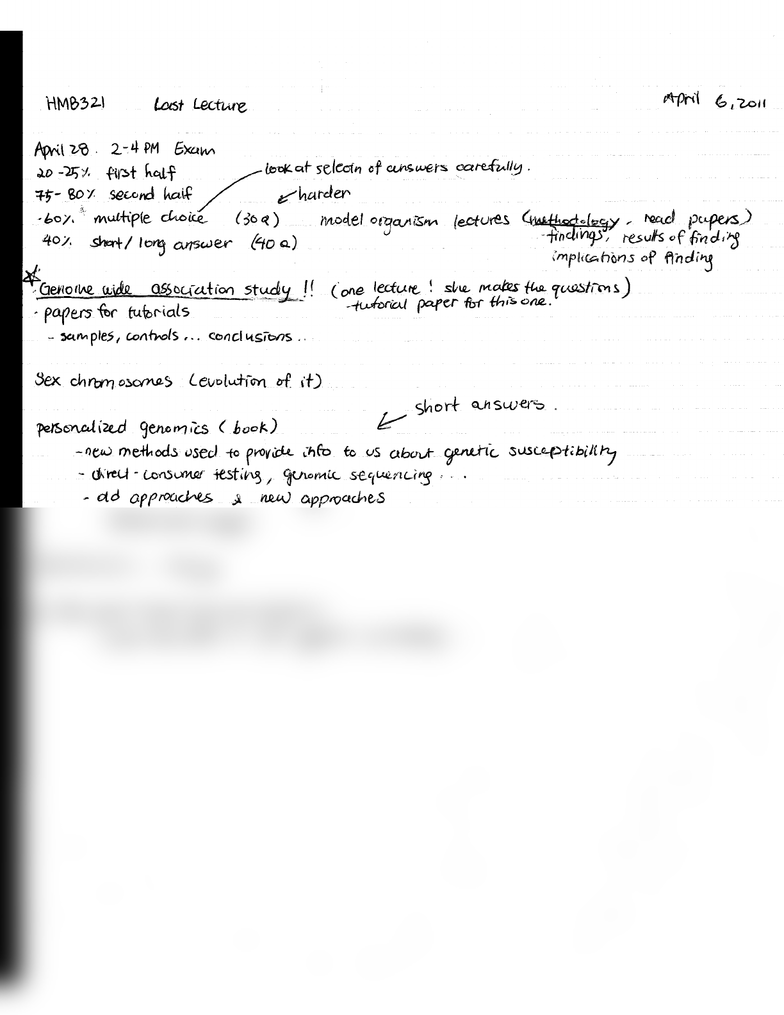 HMB321 Last Lecture April 6, 2011
April 28. 2-4 PM Exam
20-25% first half look at selectn of answers carefully.
75-80% second half harder
-60% multiple choice (30q) model organism lectures (methodology - read papers)
40% short/long answer (40q) - findings, results of finding
implications of finding
Genome wide association study !! (one lecture! she makes the questions)
- papers for tutorials - tutorial paper for this one.
- samples, controls... conclusions..
Sex chromosomes (evolution of it)
short answers.
personalized genomics (book)
- new methods used to provide info to us about genetic susceptibility
- direct-consumer testing, genomic sequencing...
- old approaches & new approaches